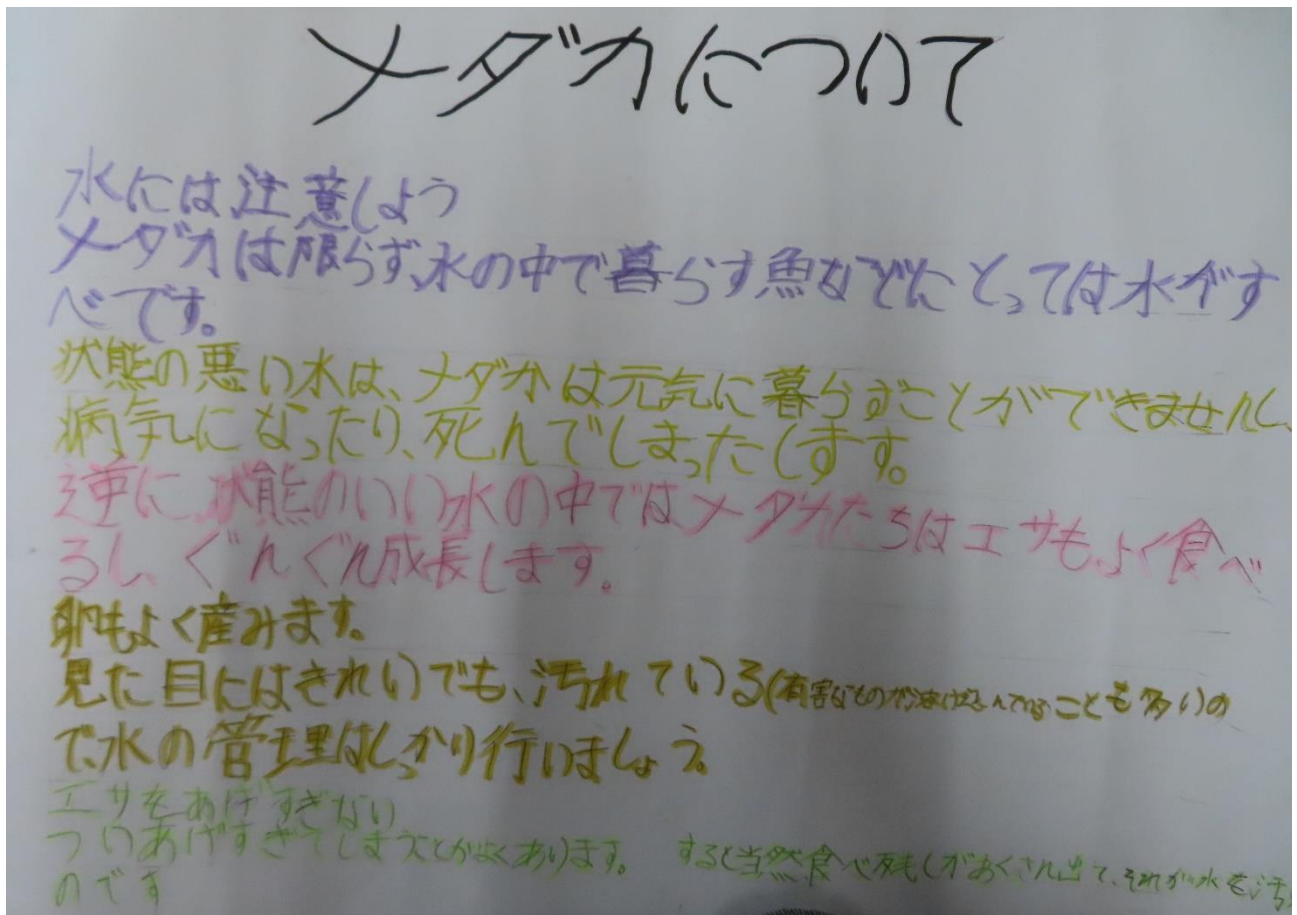 メダカについて
水には注意しよう
メダカは限らず、水の中で暮らす魚などにとっては水がす
べです。
状態の悪い水は、メダカは元気に暮らすことができませんし、
病気になったり、死んでしまったします。
逆に、状態のいい水の中ではメダカたちはエサもよく食べ
るし、ぐんぐん成長します。
卵もよく産みます。
見た目にはきれいでも、汚れている(有害なものが ことも多いの
で、水の管理はしっかり行いましょう。
エサをあげすぎない
ついあげすぎてしまうことがよくあります。 すると当然食べ残しがたくさん出て、それが水を汚
のです